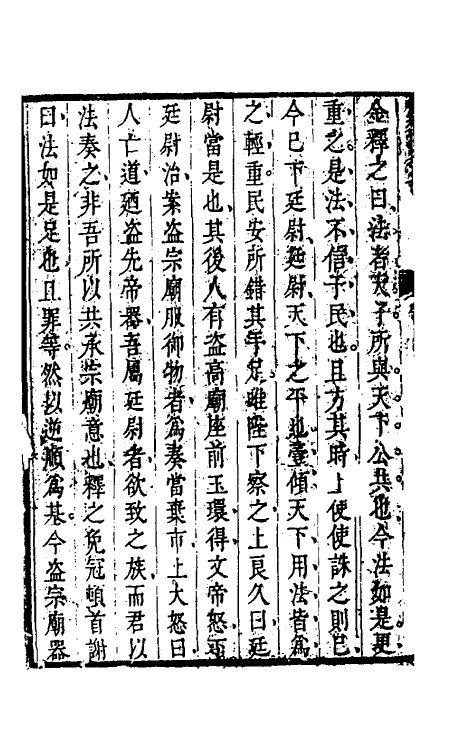 金釋之曰法者天子所與天下公共也今法如是更
重之是法不信于民也且方其時上使使誅之則已
今已下廷尉廷尉天下之平也壹傾天下用法皆為
之輕重民安所錯其手足唯陛下察之上良久曰廷
尉當是也其後人有盜高廟座前玉環得文帝怒下
廷尉治案盜宗廟服御物者為奏當棄市上大怒曰
人亡道廼盜先帝器吾屬廷尉者欲致之族而君以
法奏之非吾所以共承宗廟意也釋之免冠頓首謝
曰法如是足也且罪等然以逆順為基今盜宗廟器